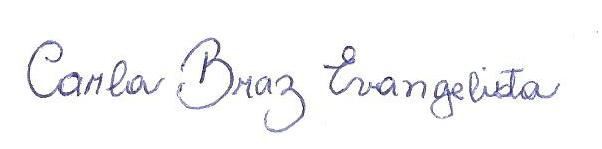 Carla Braz Evangelista